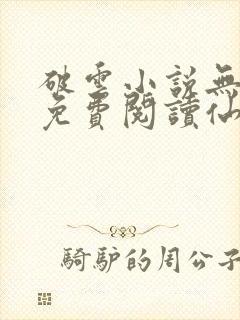 破雲小説無
免費閱讀仙
騎驢的周公子